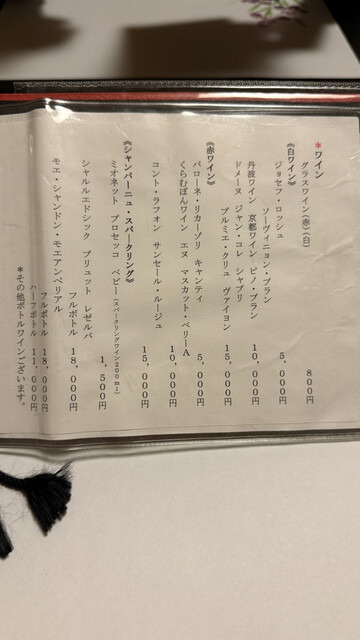 ＊ワイン
グラスワイン(赤)(白) 800円
《白ワイン》
ジョセフ・ロッシュ
ソーヴィニョン・ブラン 5,000円
丹波ワイン 京都ワイン ピノ・ブラン 10,000円
ドメーヌ ジャン・コレ シャブリ
プルミエ・クリュ ヴァイヨン 15,000円
《赤ワイン》
バローネ・リカーゾリ キャンティ 5,000円
くらむぼんワイン エヌ マスカット・ベリーA 10,000円
コント・ラフォン サンセール・ルージュ 15,000円
《シャンパーニュ・スパークリング》
ミオネット プロセッコ ベビー(スパークリングワイン200ml) 1,500円
シャルルエドシック ブリュット レゼルバ
フルボトル 18,000円
モエ・シャンドン・モエアンペリアル
フルボトル 18,000円
ハーフボトル 11,000円
＊その他ボトルワインございます。